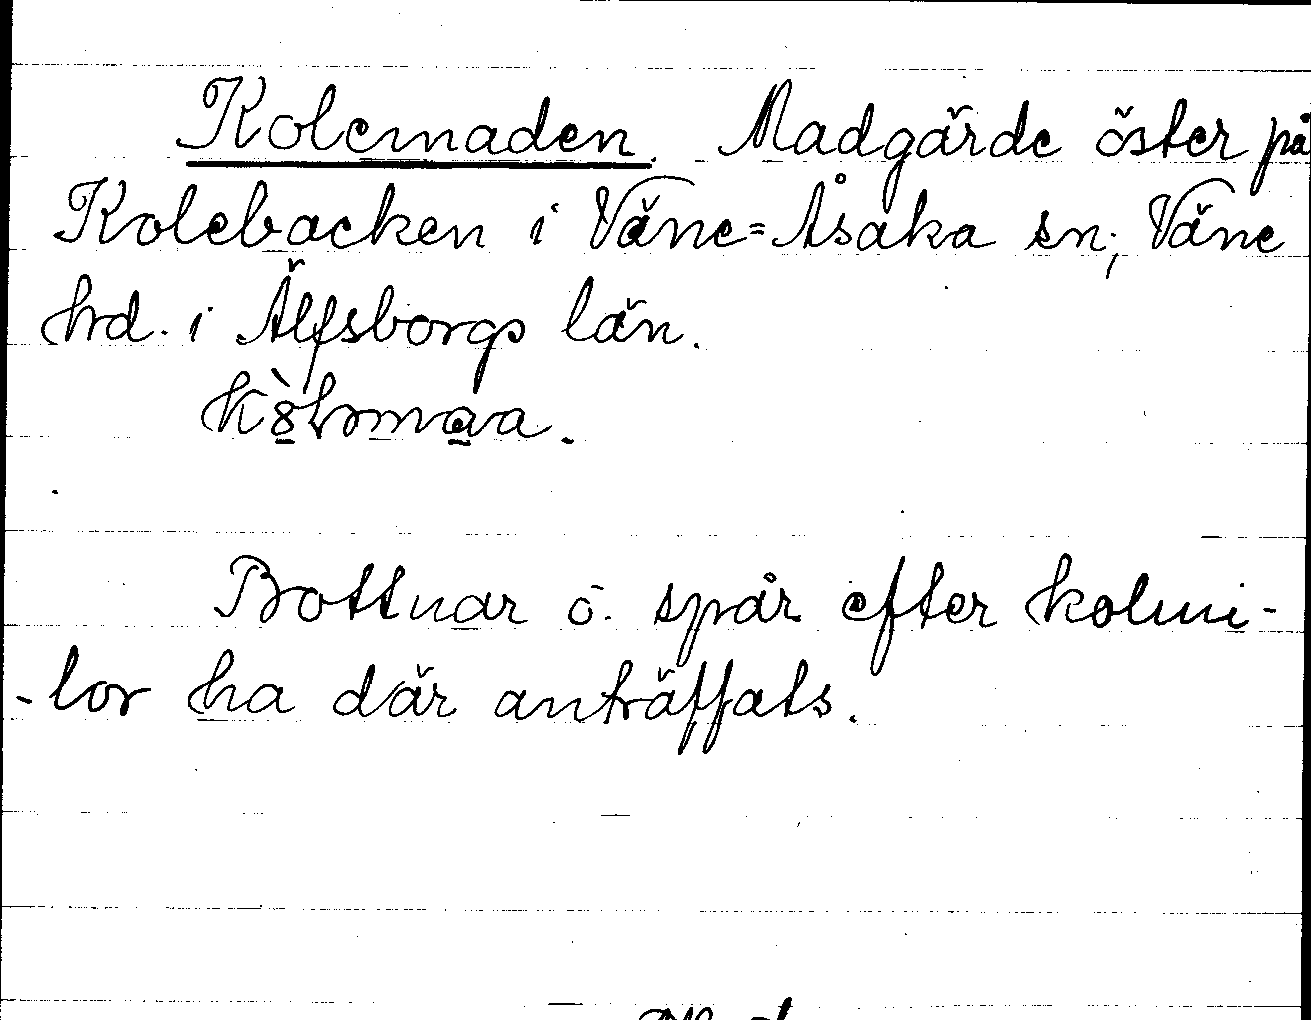 Kolemaden. Madgärde öster på
Kolebacken i Väne=Åsaka sn; Väne
hrd. i Älfsborgs län.
Bottnar o. spår efter kolmi-
-lor ha där anträffats.